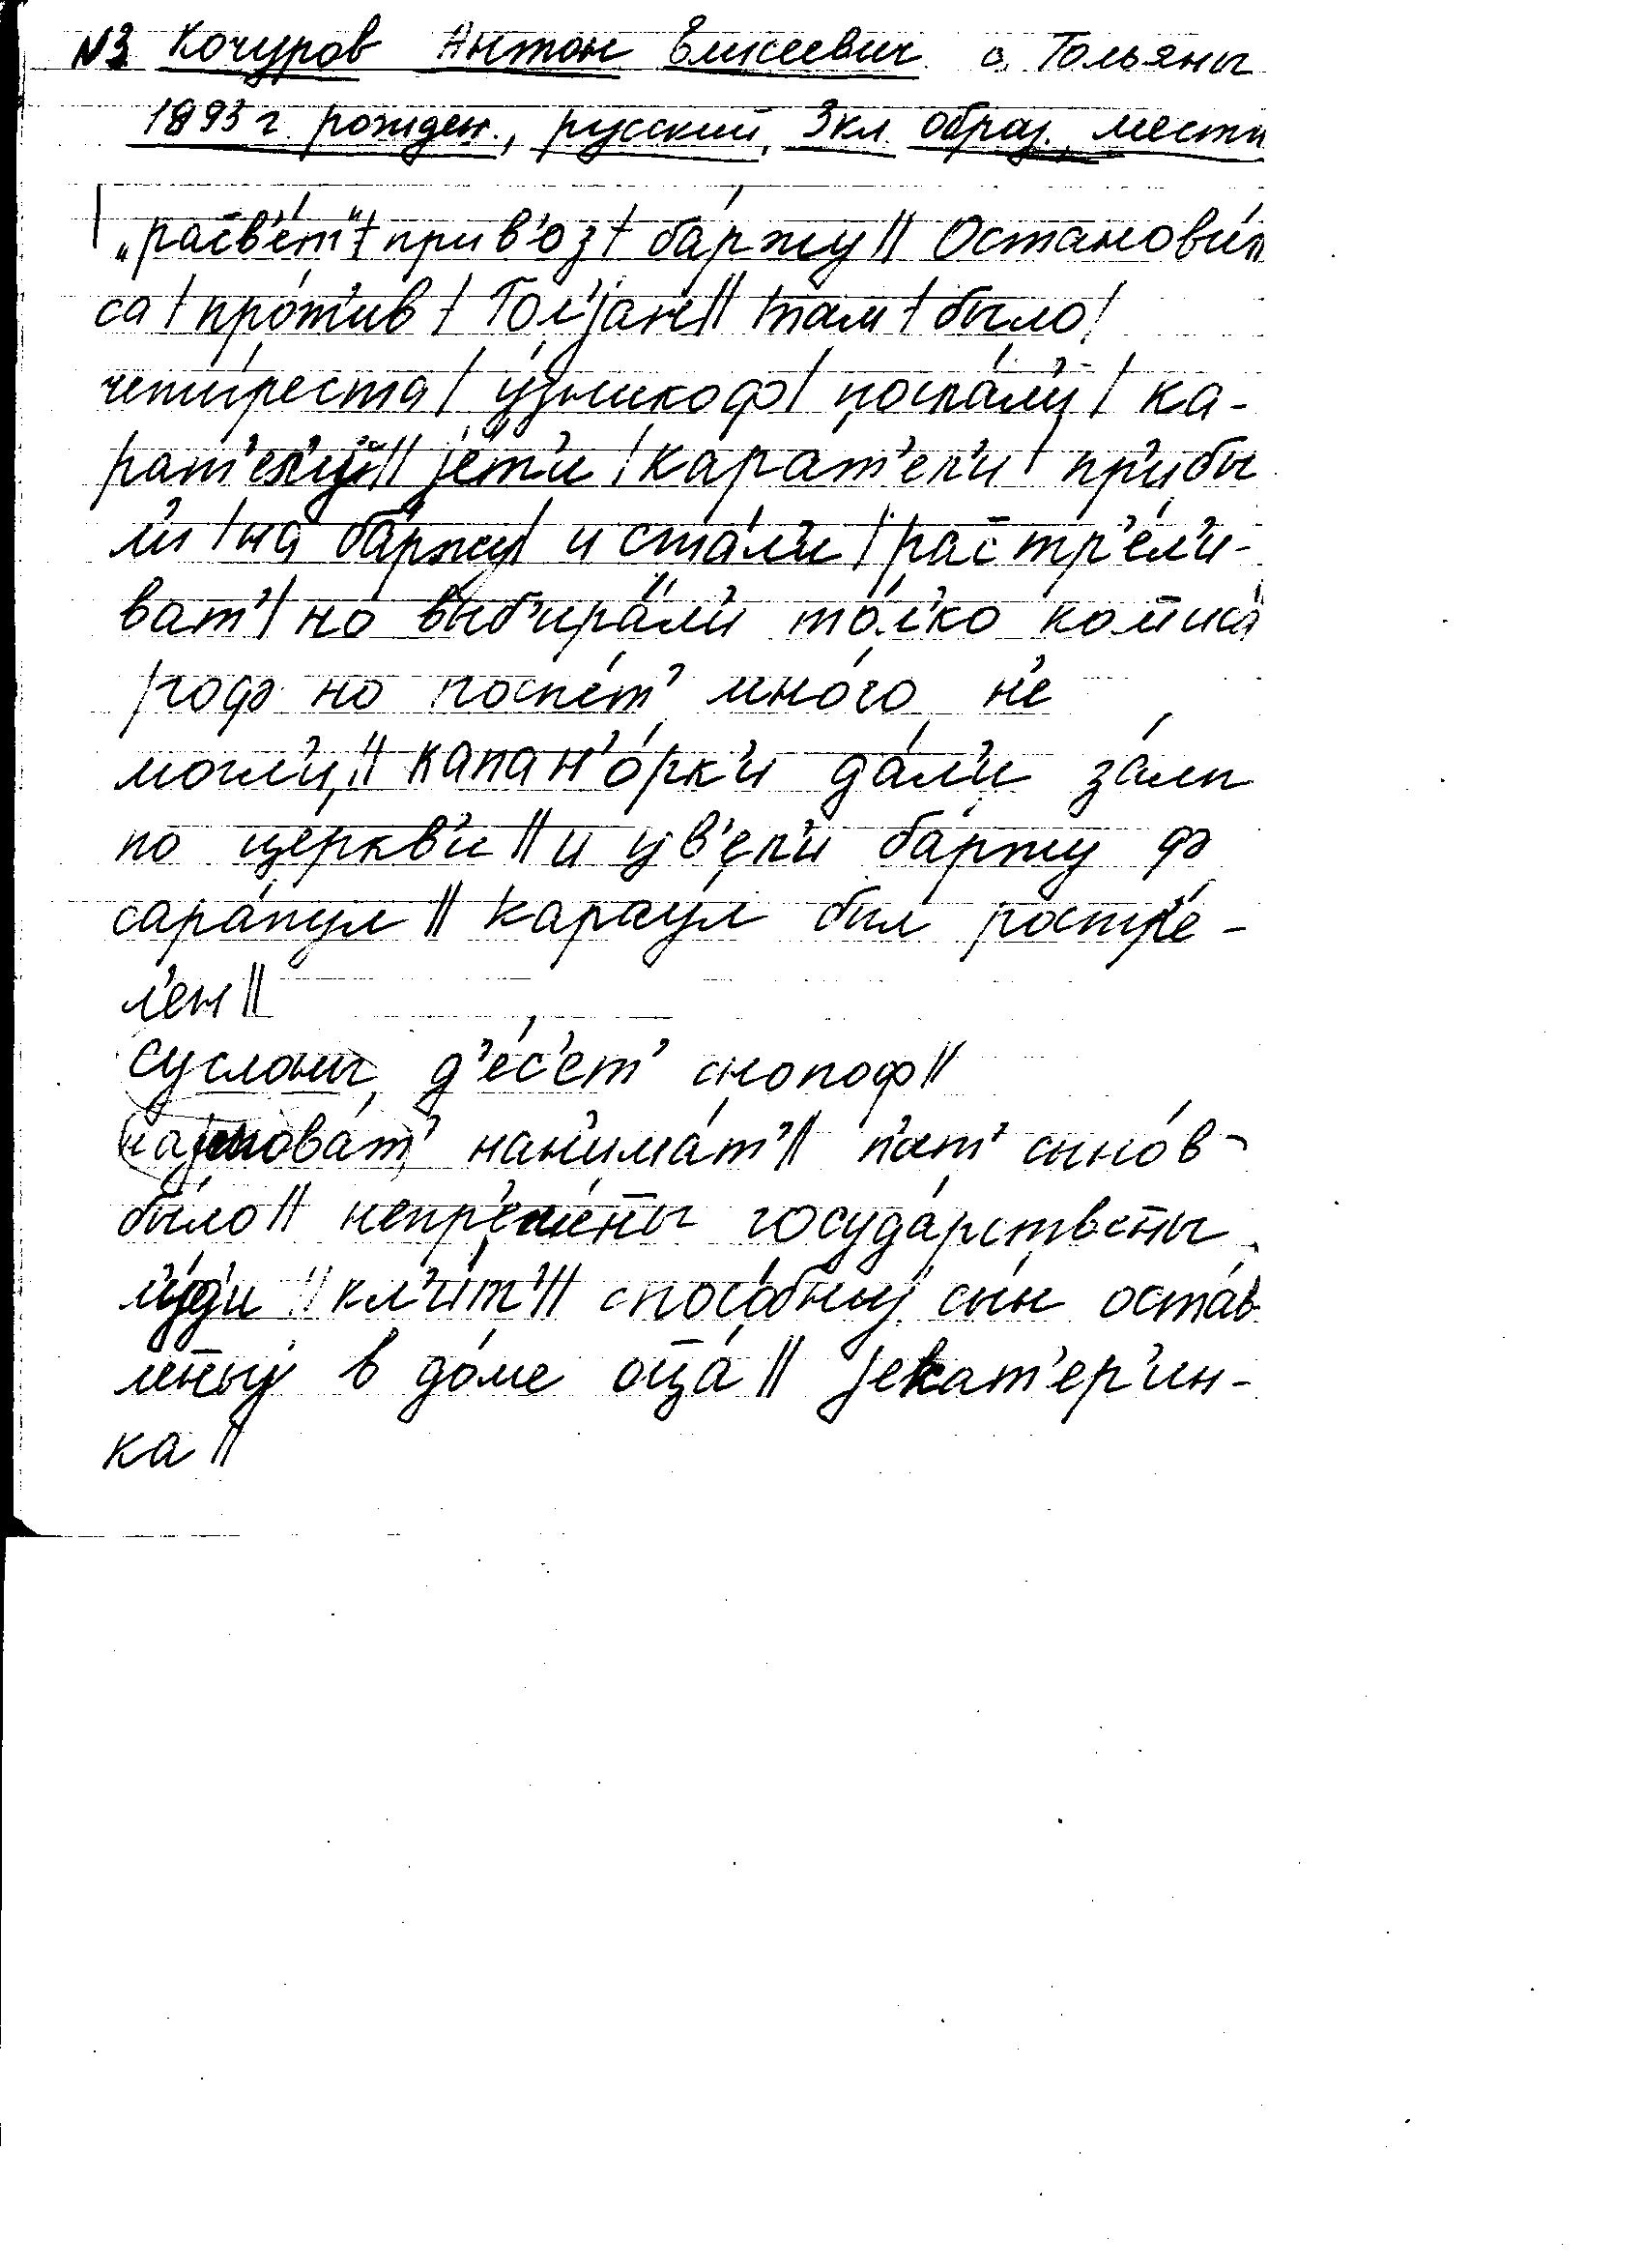 №3 Кочуров Антон Елисеевич с. Гольяны
1893 г. рожден., русский, 3 кл. образ., местн
| „расв'е́т" | прив'о́з | ба́ржу || Останови́л
са | про́т'ив | Гол'јан || там | было |
четы́реста | у́зникоф | посла́л'и | ка-
рат'ел'иј || је́т'и | карат'ел'и | прибы
л'и | на ба́ржу | и ста́л'и | растр'е́л'и-
ват' | но выб'ира́л'и то́л'ко комиса́
роф но поспе́т' мно́го н'е
могл'и || капан'о́рк'и да́л'и залп
по церкв'и || и ув'ел'и ба́ржу ф
сара́пул || караул был ростр'е́-
л'ен ||
Суслоны, д'ес'ет' снопоф ||
најмова́т' нан'има́т' || п'ат' сыно́в
бы́ло || непр'еме́ны госуда́рствены
л'у́д'и || кл'ит' || спосо́бныј сын оста́в
леныј в до́ме оца́ || јекат'ер'ин-
ка ||